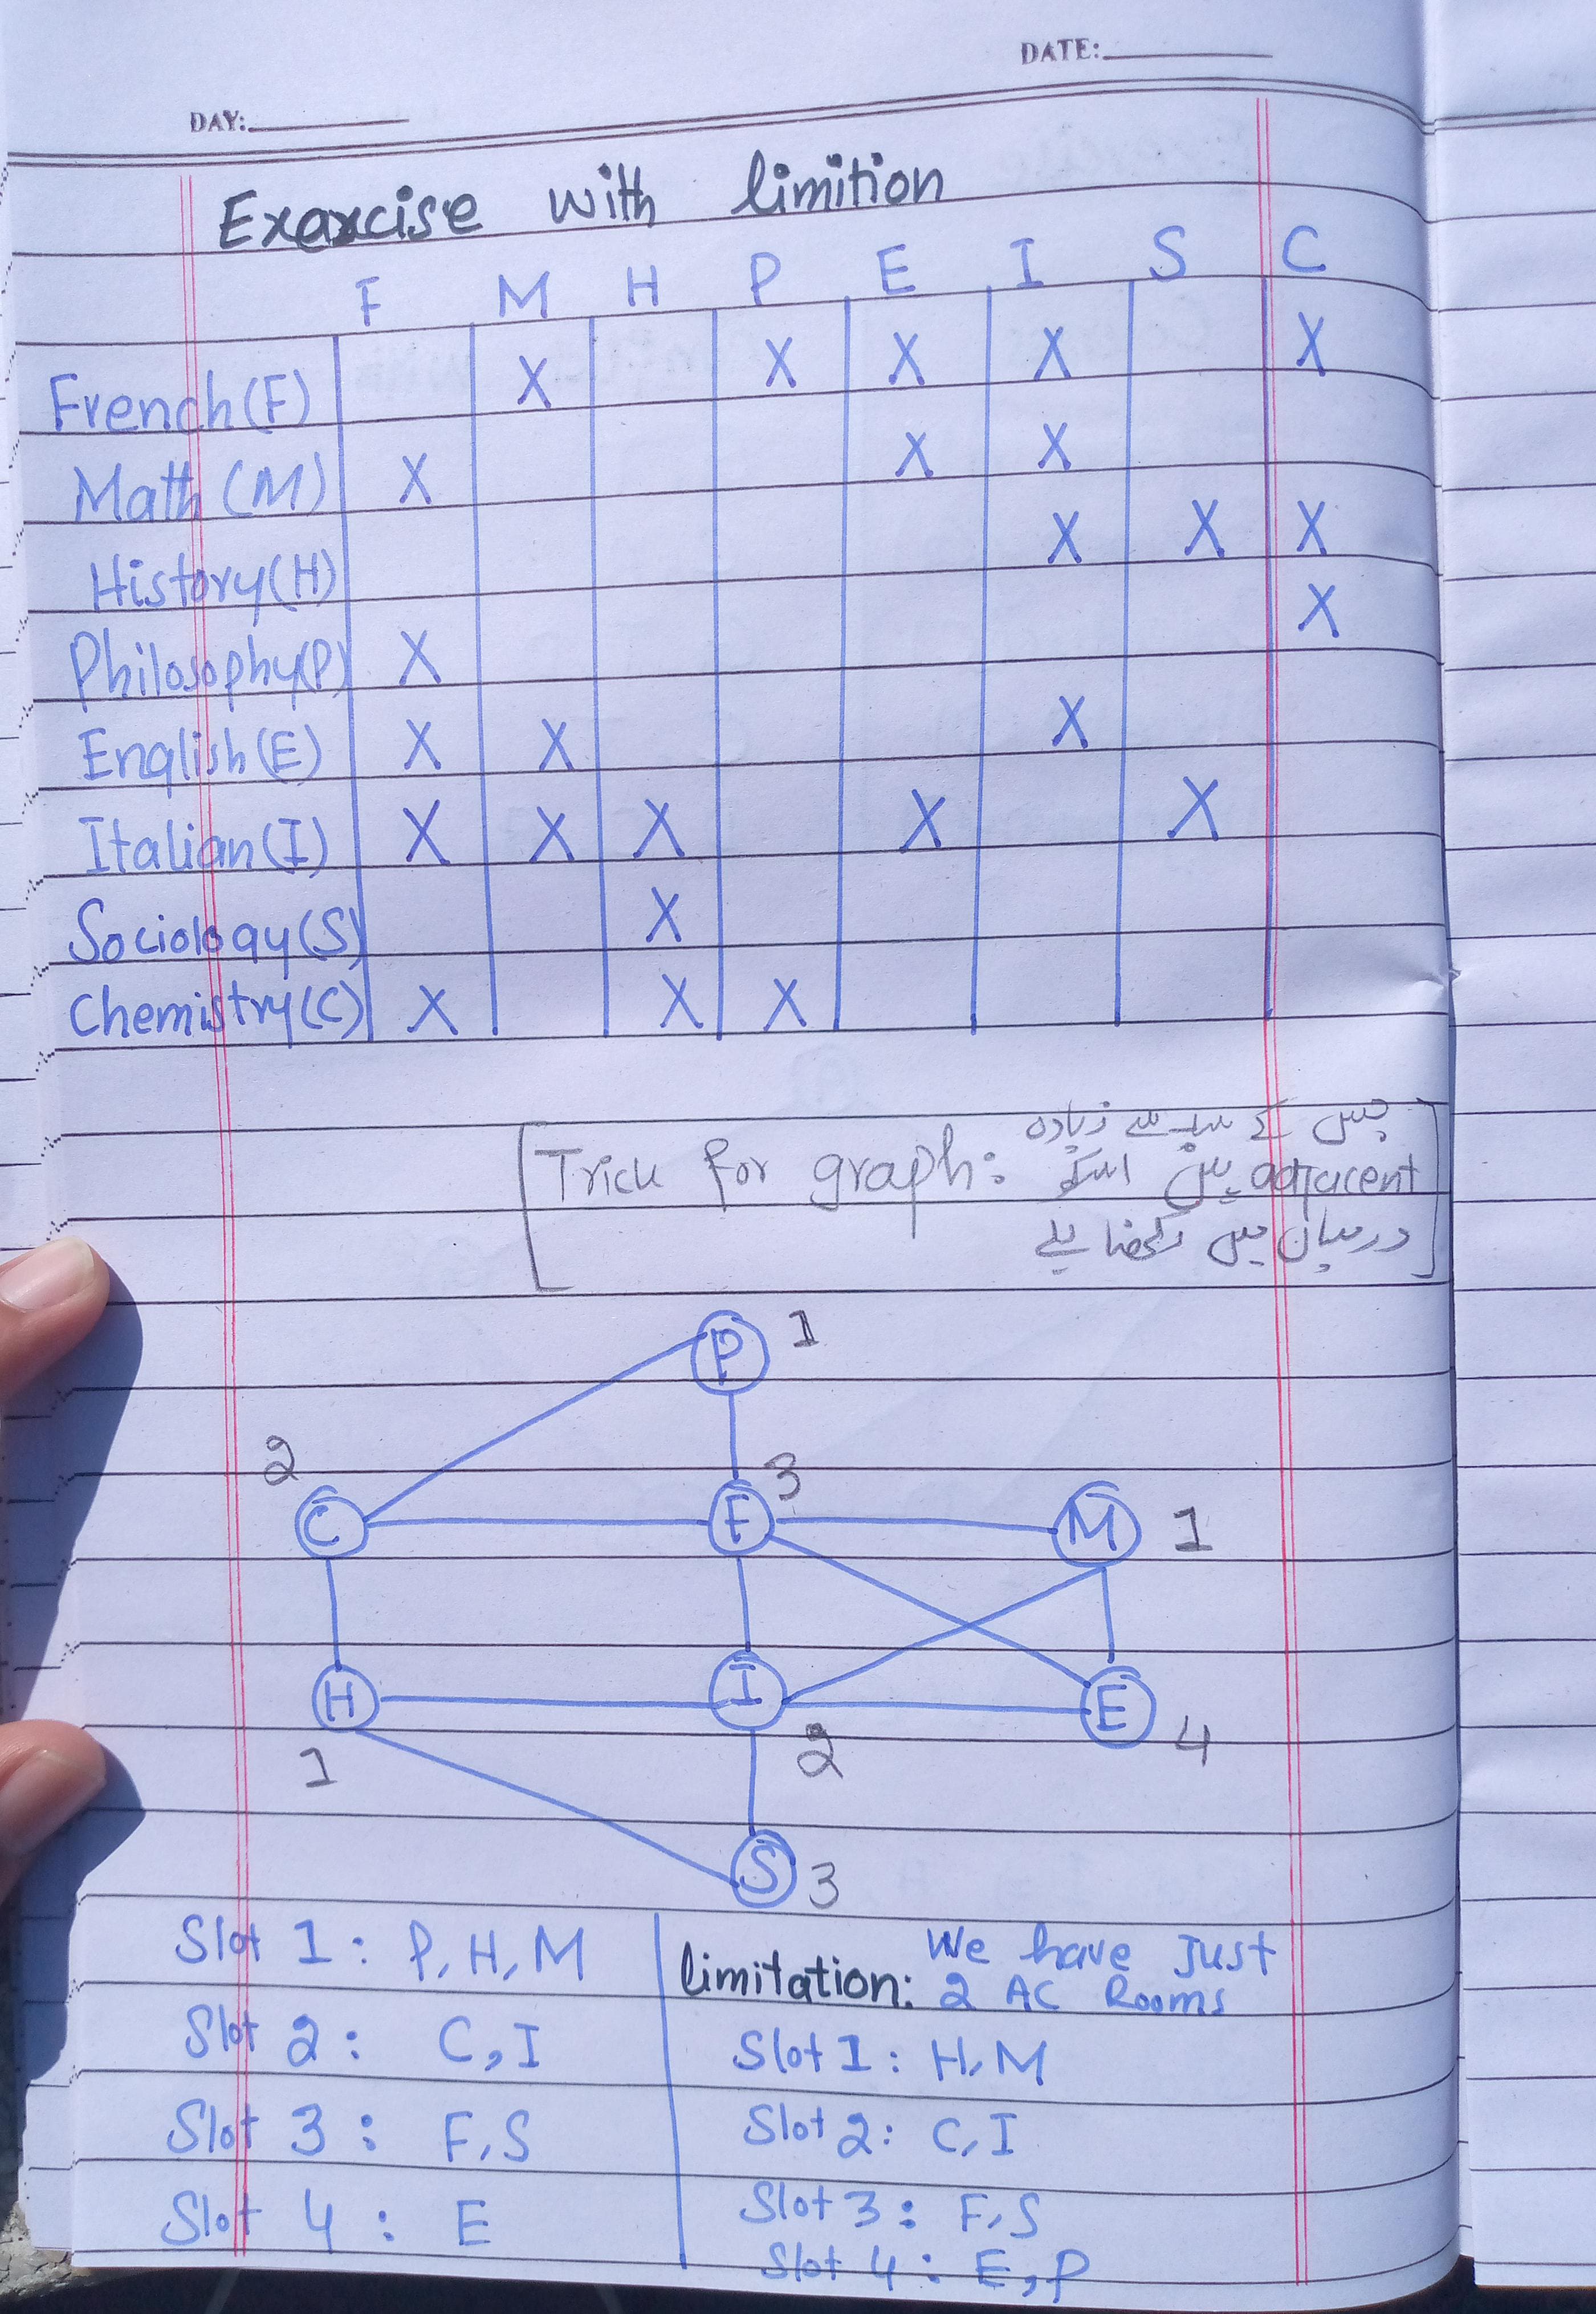 DATE:
DAY:
Exarcise with limition
F M H P E I S C
French(F) X X X X X
Math (M) X X X
History(H) X X X
Philosophy(P) X X
English(E) X X X
Italian(I) X X X X X
Sociology(S) X
Chemistry(C) X X X
جس کے سب سے زیادہ
Trick for graph: adjacent ہیں اسکو
درمیان میں رکھنا ہے
P 1
2 3
C F M 1
H I E
1 2 4
S 3
Slot 1: P, H, M
Slot 2: C, I
Slot 3: F, S
Slot 4: E
We have Just
limitation: 2 AC Rooms
Slot 1: H, M
Slot 2: C, I
Slot 3: F, S
Slot 4: E, P